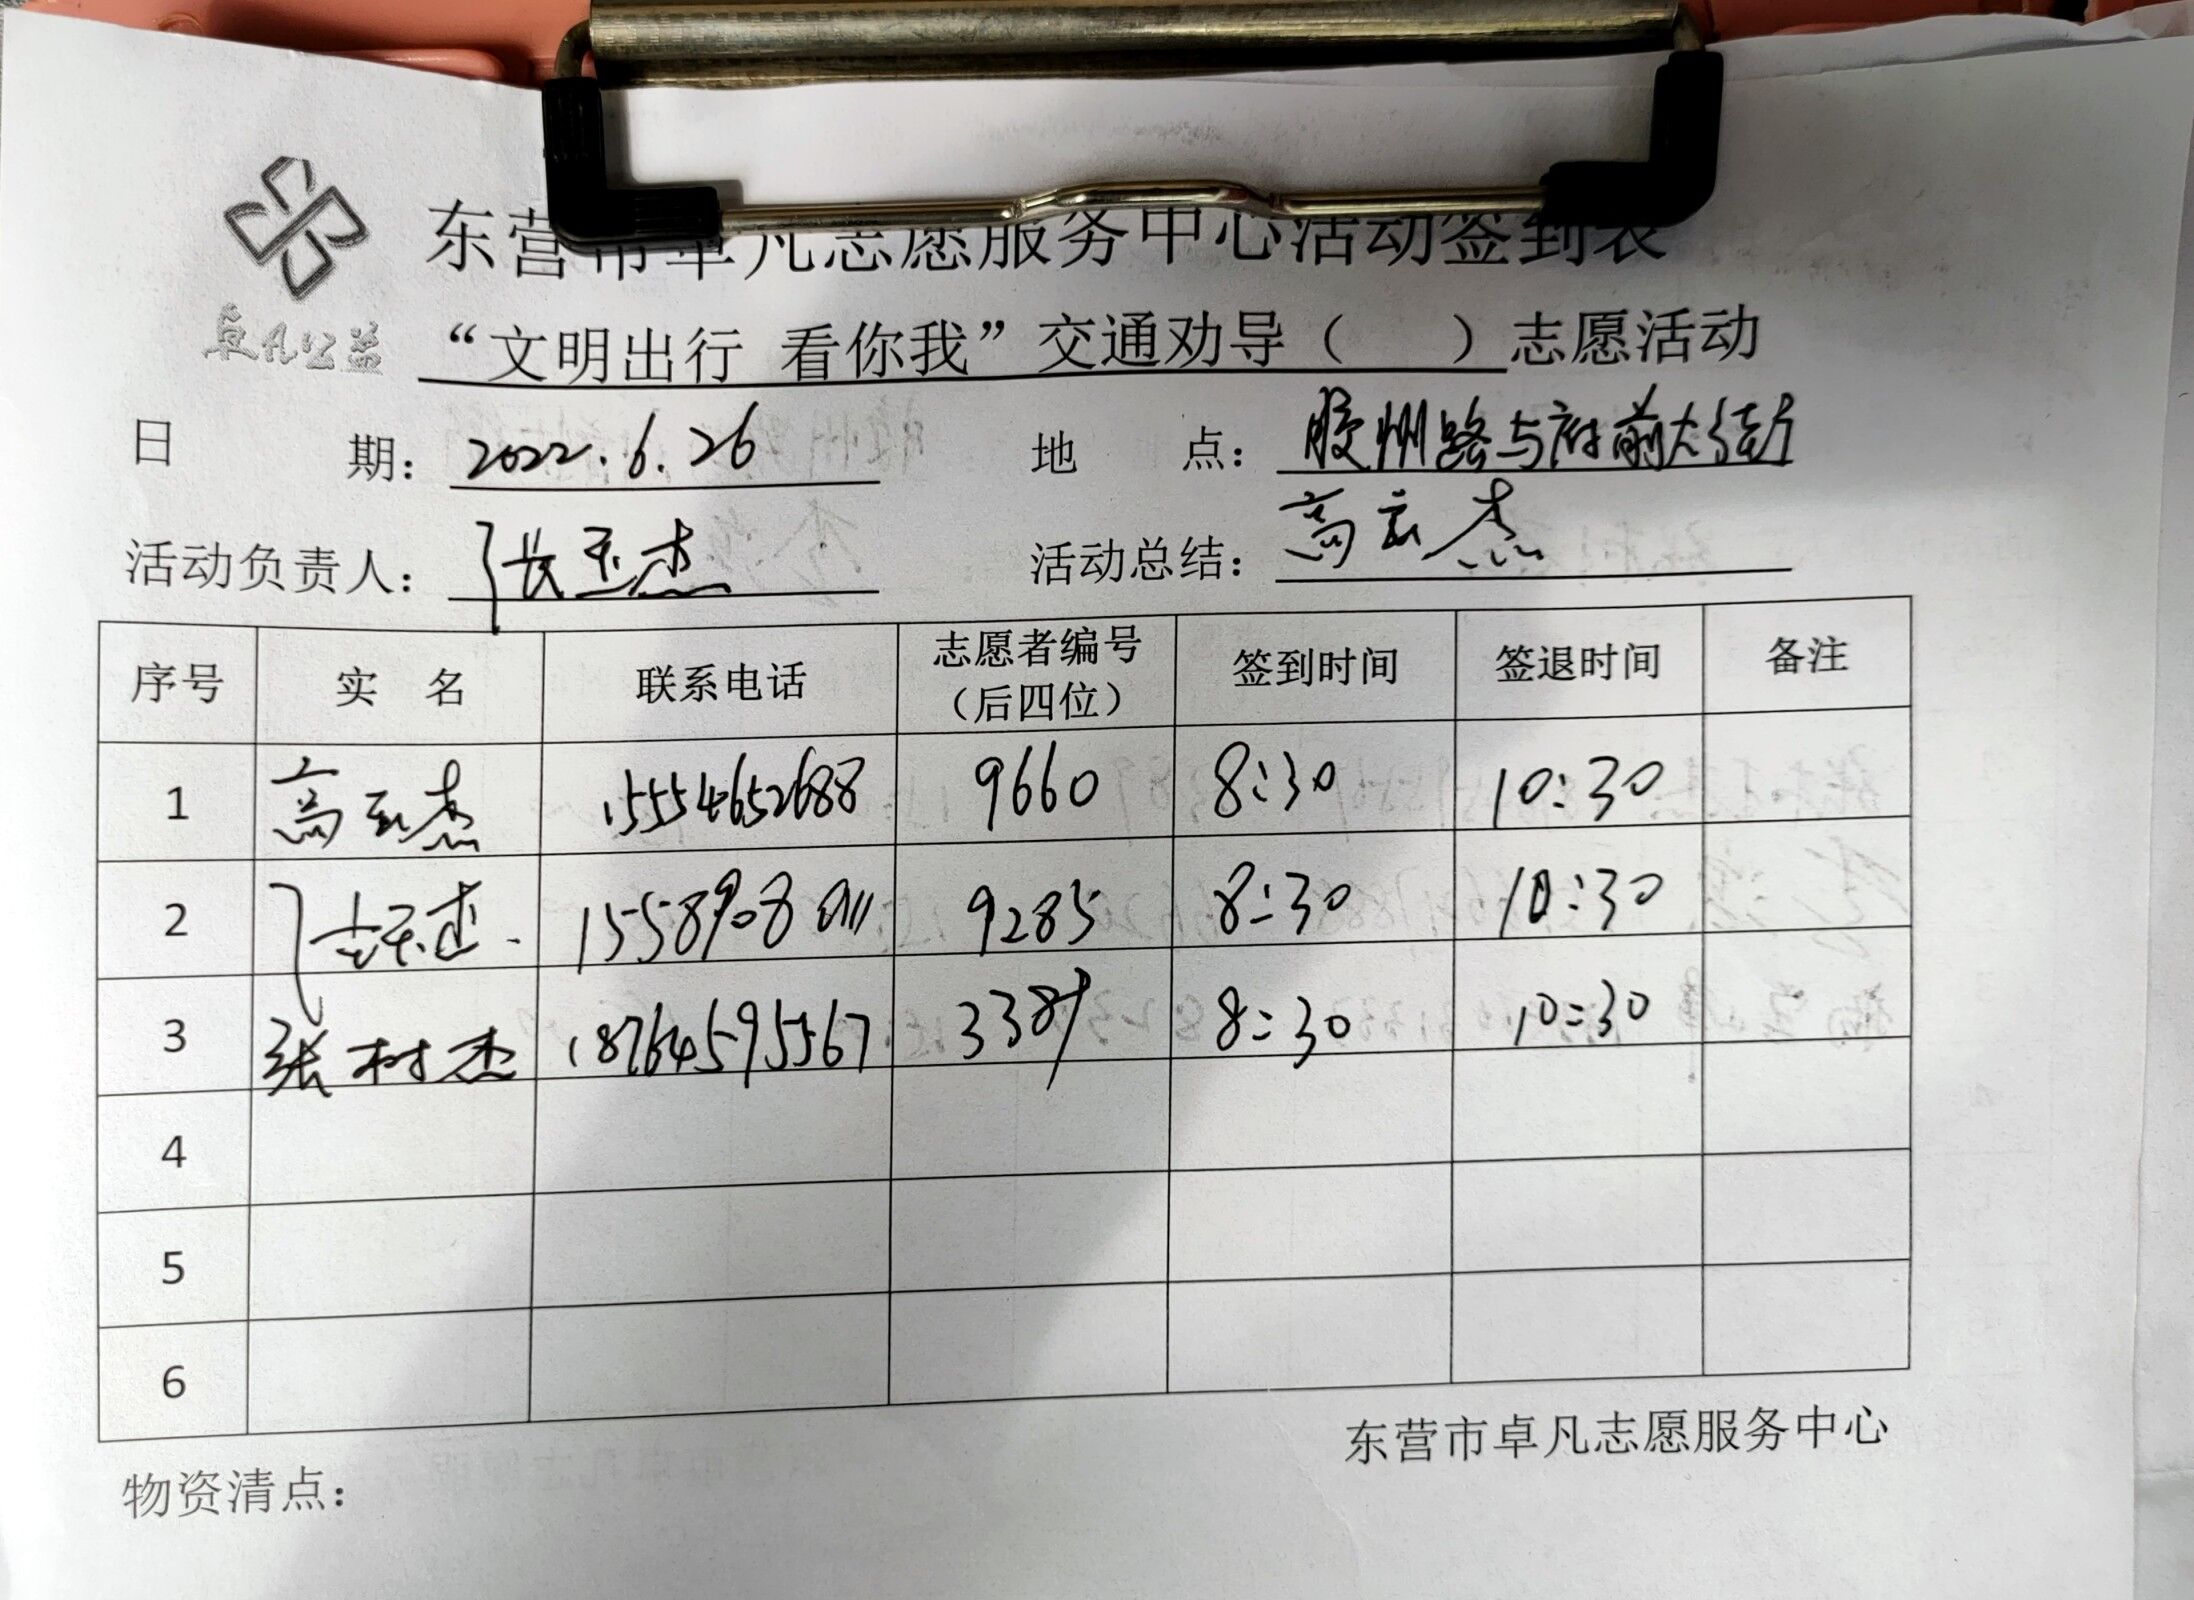 东营市卓凡志愿服务中心活动签到表
卓凡公益
“文明出行 看你我”交通劝导（ ）志愿活动
日 期：2022.6.26 地 点：胶州路与府前大街
活动负责人：张玉杰 活动总结：高云杰
序号 实 名 联系电话 志愿者编号（后四位） 签到时间 签退时间 备注
1 高云杰 15554652688 9660 8:30 10:30
2 张玉杰 15589908011 9285 8:30 10:30
3 张村杰 18764595567 3389 8:30 10:30
4
5
6
东营市卓凡志愿服务中心
物资清点：